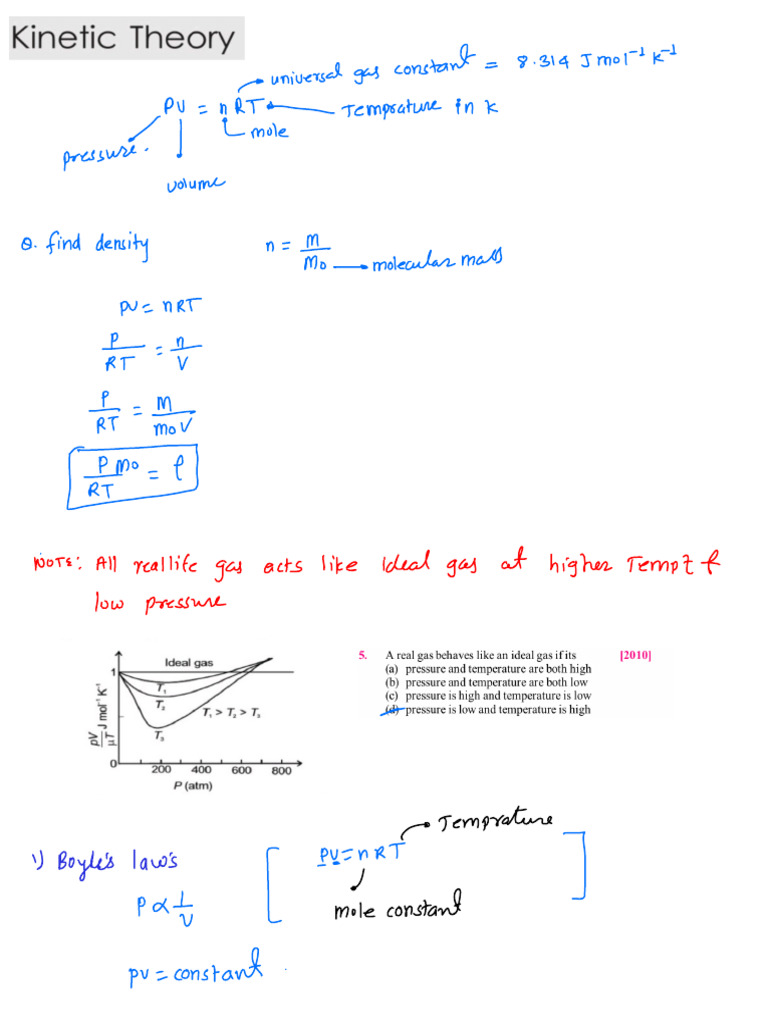 Kinetic Theory
universal gas constant = 8.314 J mol⁻¹ K⁻¹
PV = nRT
Temprature in K
mole
pressure.
volume
Q. find density
n = m/M₀
molecular mass
PV = nRT
P/RT = n/V
P/RT = M/M₀V
PM₀/RT = ρ
NOTE: All reallife gas acts like Ideal gas at higher Tempt &
low pressure
Ideal gas
1
T₁
T₂
T₁ > T₂ > T₃
T₃
pV/μT J mol⁻¹ K⁻¹
0
200 400 600 800
P (atm)
5. A real gas behaves like an ideal gas if its [2010]
(a) pressure and temperature are both high
(b) pressure and temperature are both low
(c) pressure is high and temperature is low
(d) pressure is low and temperature is high
Temprature
1) Boyle's law's
[ PV = nRT ]
mole constant
P ∝ 1/V
PV = constant